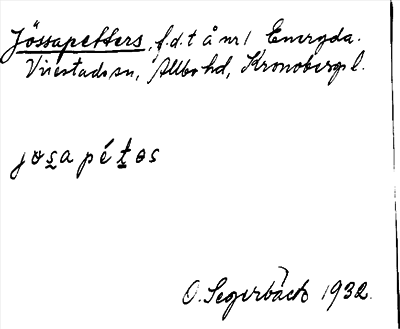 Jössapetters, f.d.t å nr 1 Emryda.
Virestads sn, Allbo hd, Kronobergs l.
jɵs̲a pé t̲ɵs
O. Segerbäck 1932.